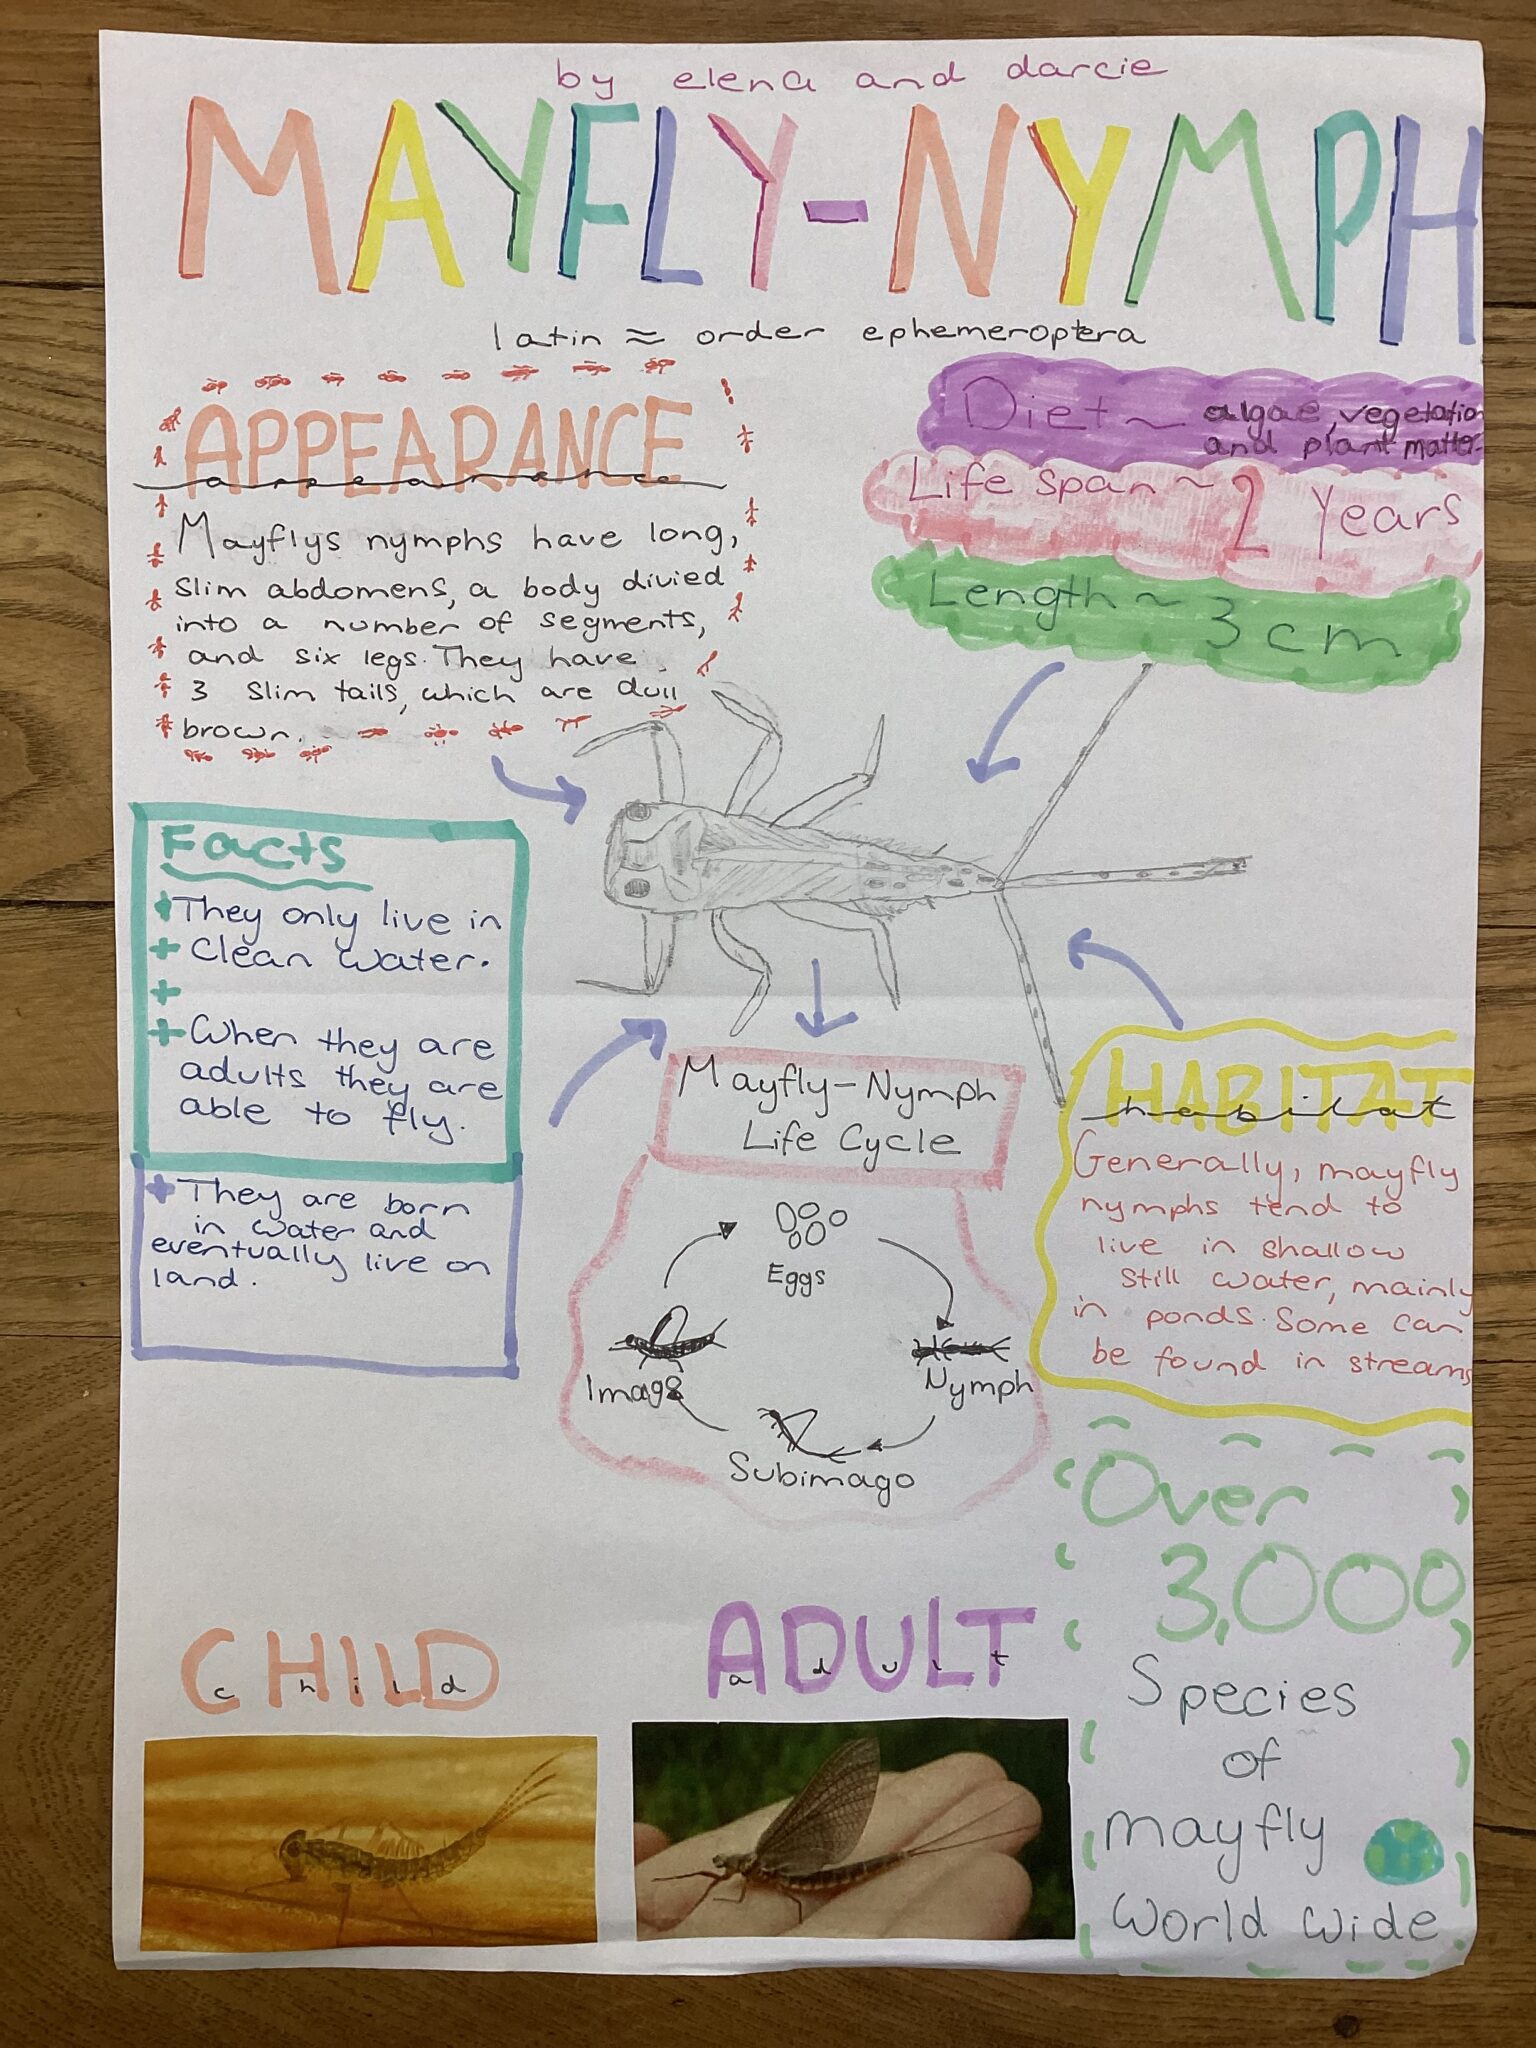 by elena and darcie
MAYFLY-NYMPH
latin ≈ order ephemeroptera
APPEARANCE
appearance
Mayflys nymphs have long,
slim abdomens, a body divied
into a number of segments,
and six legs. They have
3 slim tails, which are dull
brown.
Diet ~ algae, vegetation
and plant matter.
Life span ~ 2 Years
Length ~ 3cm
Facts
+ They only live in
+ Clean water.
+
+ When they are
adults they are
able to fly.
+ They are born
in water and
eventually live on
land.
Mayfly-Nymph
Life Cycle
Eggs
Nymph
Subimago
Imago
HABITAT
habitat
Generally, mayfly
nymphs tend to
live in shallow
still water, mainly
in ponds. Some can
be found in streams
Over
3,000
Species
of
mayfly
World Wide
CHILD
child
ADULT
adult